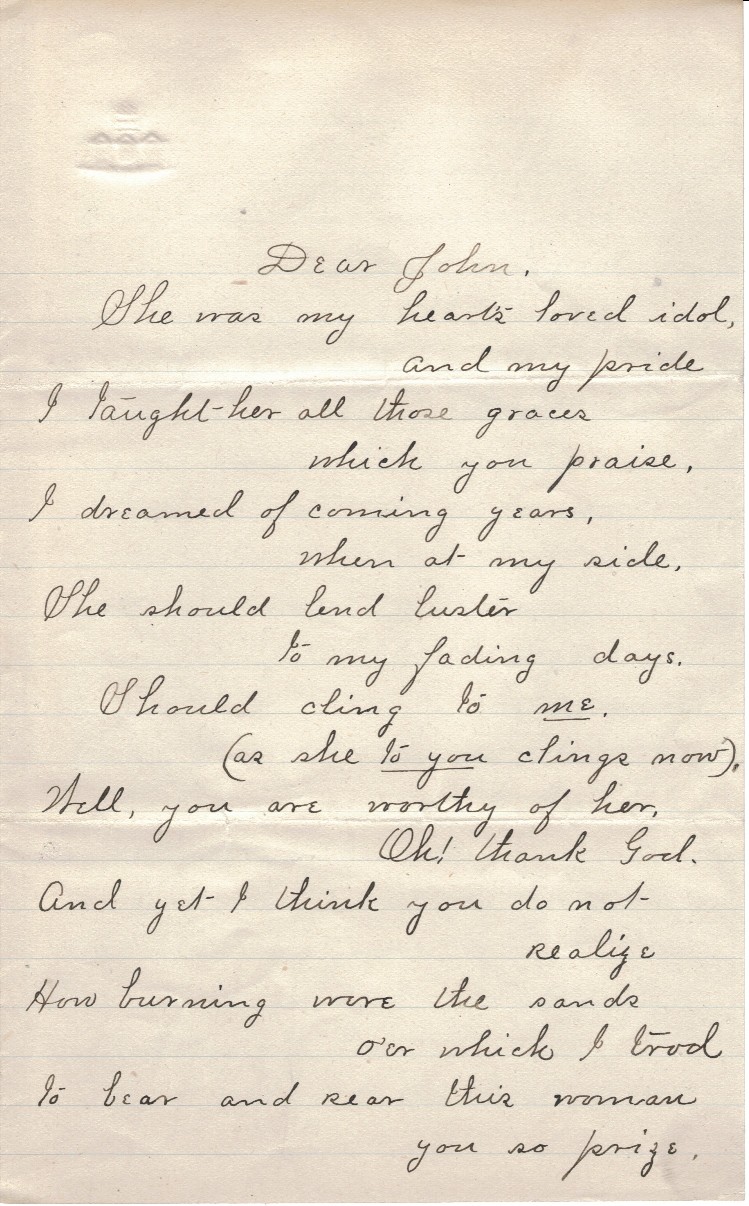 Dear John,
She was my heart's loved idol,
and my pride
I taught her all those graces
which you praise,
I dreamed of coming years,
when at my side,
She should lend luster
to my fading days.
Should cling to me.
(as she to you clings now).
Well, you are worthy of her,
Oh! thank God.
And yet I think you do not
realize
How burning were the sands
o'er which I trod
To bear and rear this woman
you so prize.